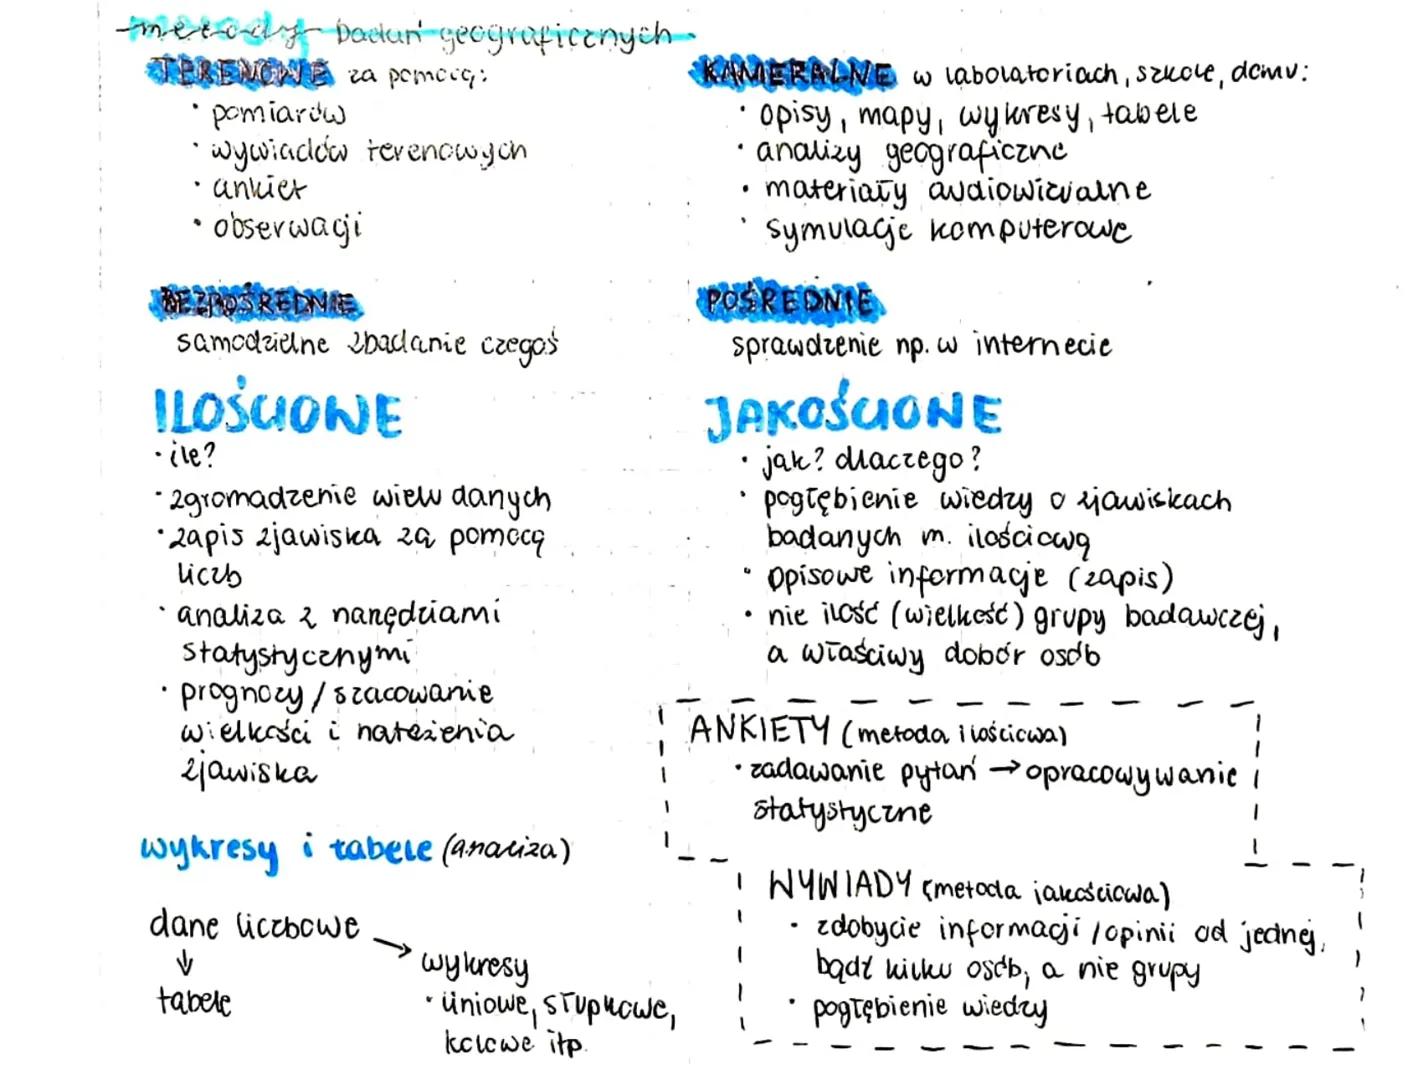 metody badań geograficznych
TERENOWE za pomocą:
· pomiarów
· wywiadów terenowych
· ankiet
· obserwacji
KAMERALNE w labolatoriach, szkole, domu:
· opisy, mapy, wykresy, tabele
· analizy geograficzne
· materiały audiowizualne
· symulacje komputerowe
BEZPOŚREDNIE
samodzielne zbadanie czegoś
POŚREDNIE
sprawdzenie np. w internecie
ILOŚCIOWE
· ile?
· zgromadzenie wielu danych
· zapis zjawiska za pomocą
liczb
· analiza z narzędziami
statystycznymi
· prognozy / szacowanie
wielkości i natężenia
zjawiska
JAKOŚCIOWE
· jak? dlaczego?
· pogłębienie wiedzy o zjawiskach
badanych m. ilościową
· opisowe informacje (zapis)
· nie ilość (wielkość) grupy badawczej,
a właściwy dobór osób
ANKIETY (metoda ilościowa)
· zadawanie pytań → opracowywanie
statystyczne
WYWIADY (metoda jakościowa)
· zdobycie informacji / opinii od jednej,
bądź kilku osób, a nie grupy
· pogłębienie wiedzy
wykresy i tabele (analiza)
dane liczbowe →
↓
tabele
wykresy
· liniowe, słupkowe,
kołowe itp.